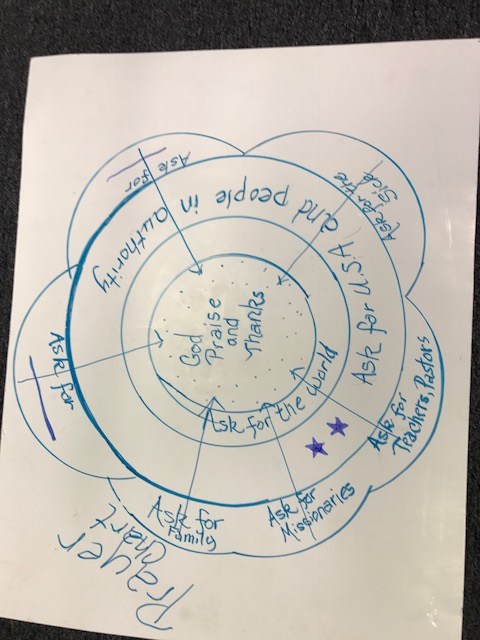 Prayer
Chart
God
Praise
and
Thanks
Ask for the World
Ask for U.S.A and people in authority
Ask for
Ask for
Ask for the
Sick
Ask for
Teachers, Pastors
Ask for
Missionaries
Ask for
Family